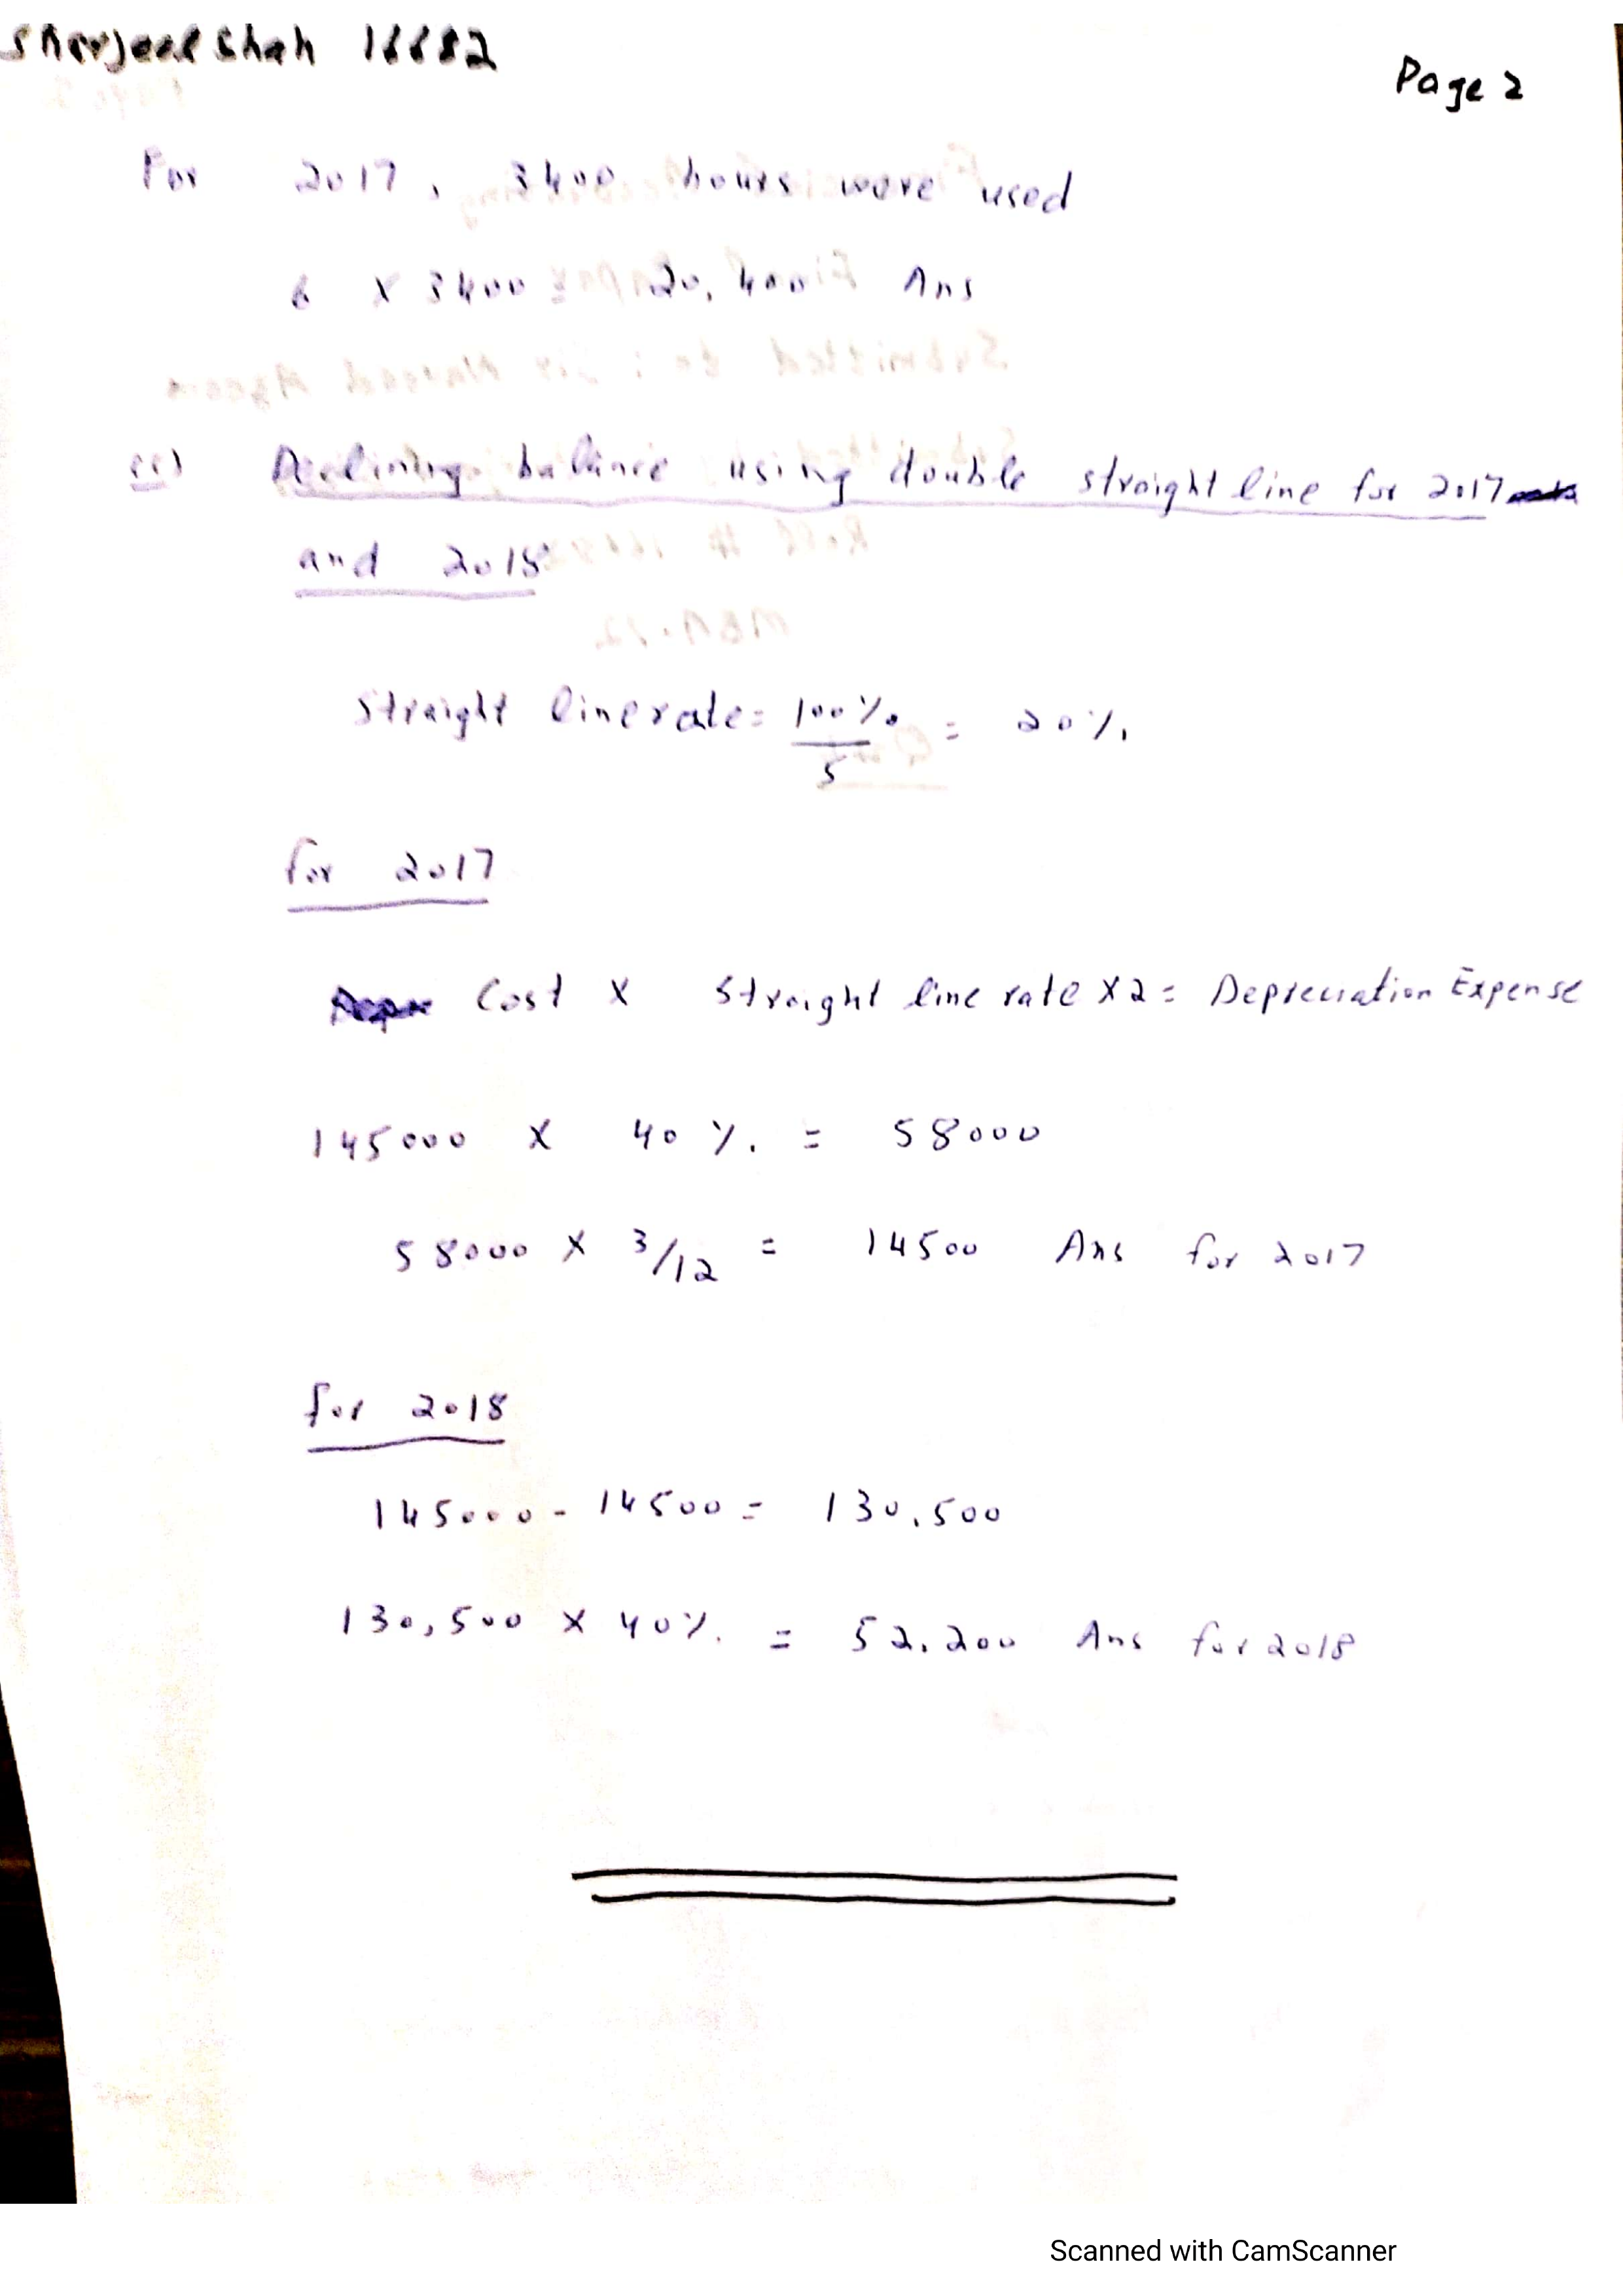 Sherjeel Shah 16682
Page 2
For 2017, 3400 hours were used
6 X 3400 = 20,400 Ans
Declining balance using double straight line for 2017
and 2018
Straight line rate = 100% / 5 = 20%.
for 2017
Cost X Straight line rate X 2 = Depreciation Expense
145000 X 40 %. = 58000
58000 X 3/12 = 14500 Ans for 2017
for 2018
145000 - 14500 = 130,500
130,500 X 40%. = 52,200 Ans for 2018
Scanned with CamScanner